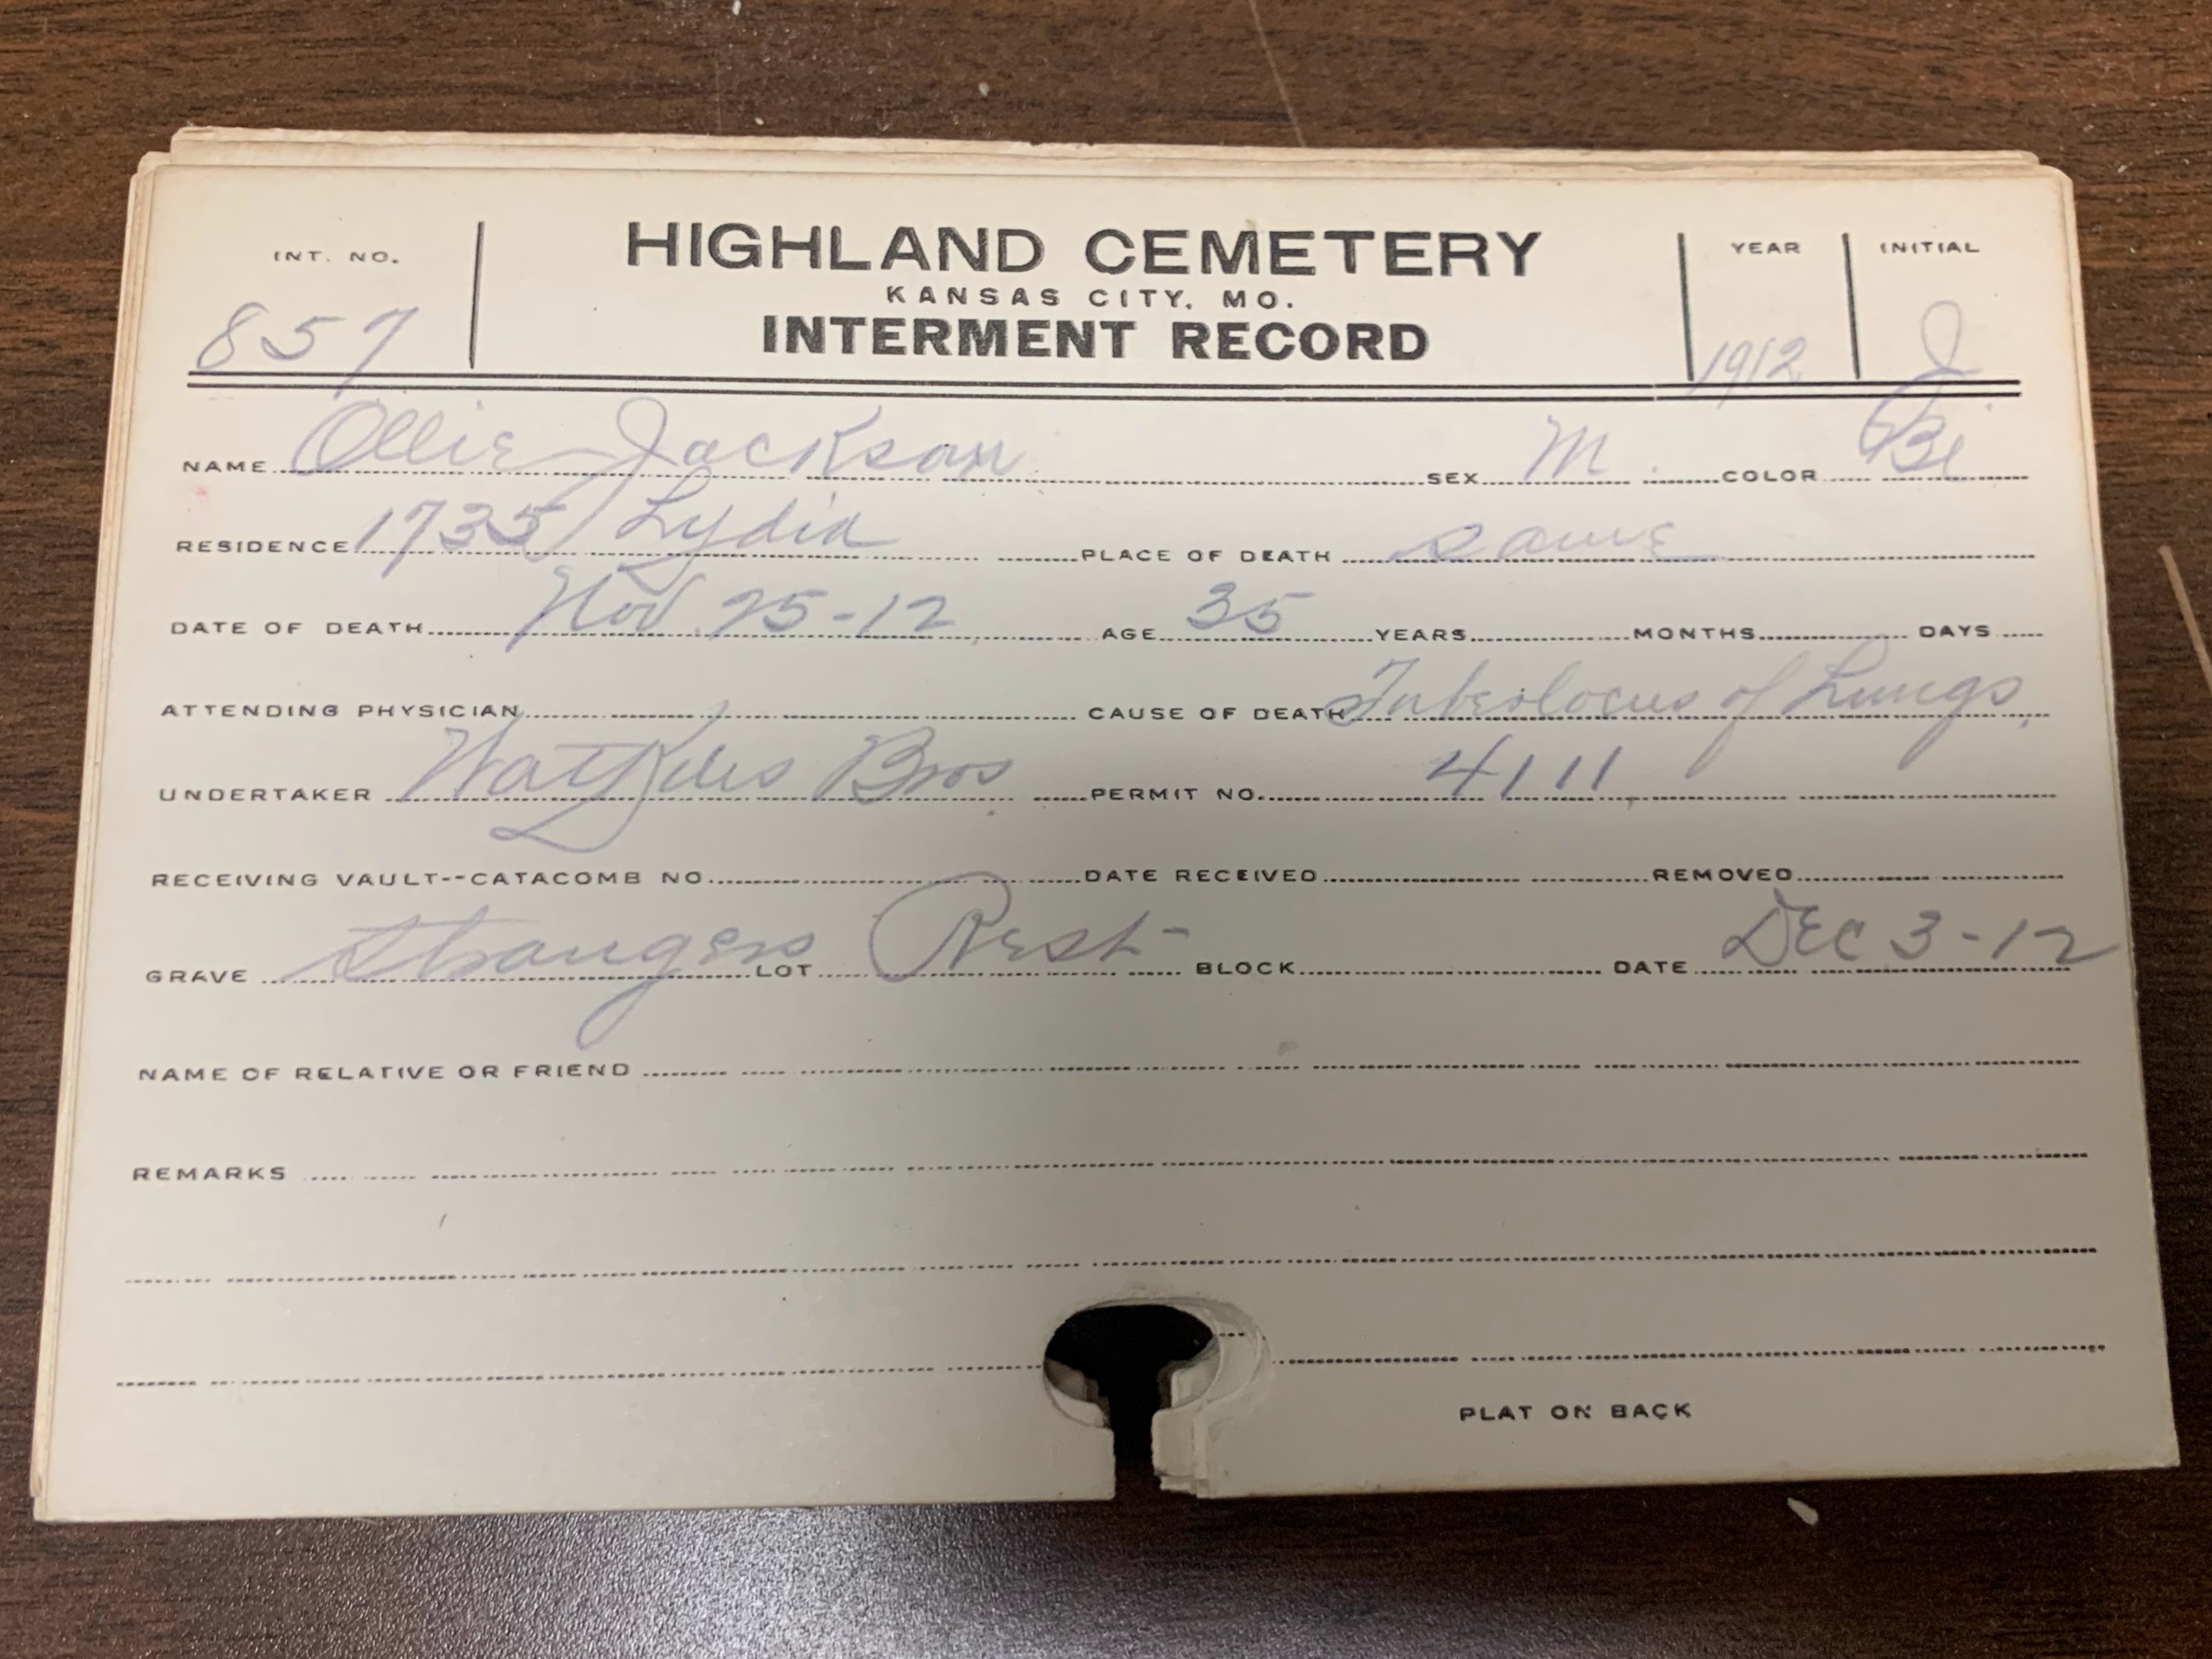 INT. NO. HIGHLAND CEMETERY YEAR INITIAL
KANSAS CITY, MO.
857 INTERMENT RECORD 1912 J
NAME Ollie Jackson SEX M. COLOR
RESIDENCE 1735 Lydia PLACE OF DEATH same
DATE OF DEATH Nov 25-12 AGE 35 YEARS MONTHS DAYS
ATTENDING PHYSICIAN CAUSE OF DEATH Tuberlocus of Lungs
UNDERTAKER Watkins Bros PERMIT NO. 4111
RECEIVING VAULT--CATACOMB NO. DATE RECEIVED REMOVED
GRAVE Strangers LOT Rest BLOCK DATE Dec 3-12
NAME OF RELATIVE OR FRIEND
REMARKS
PLAT ON BACK